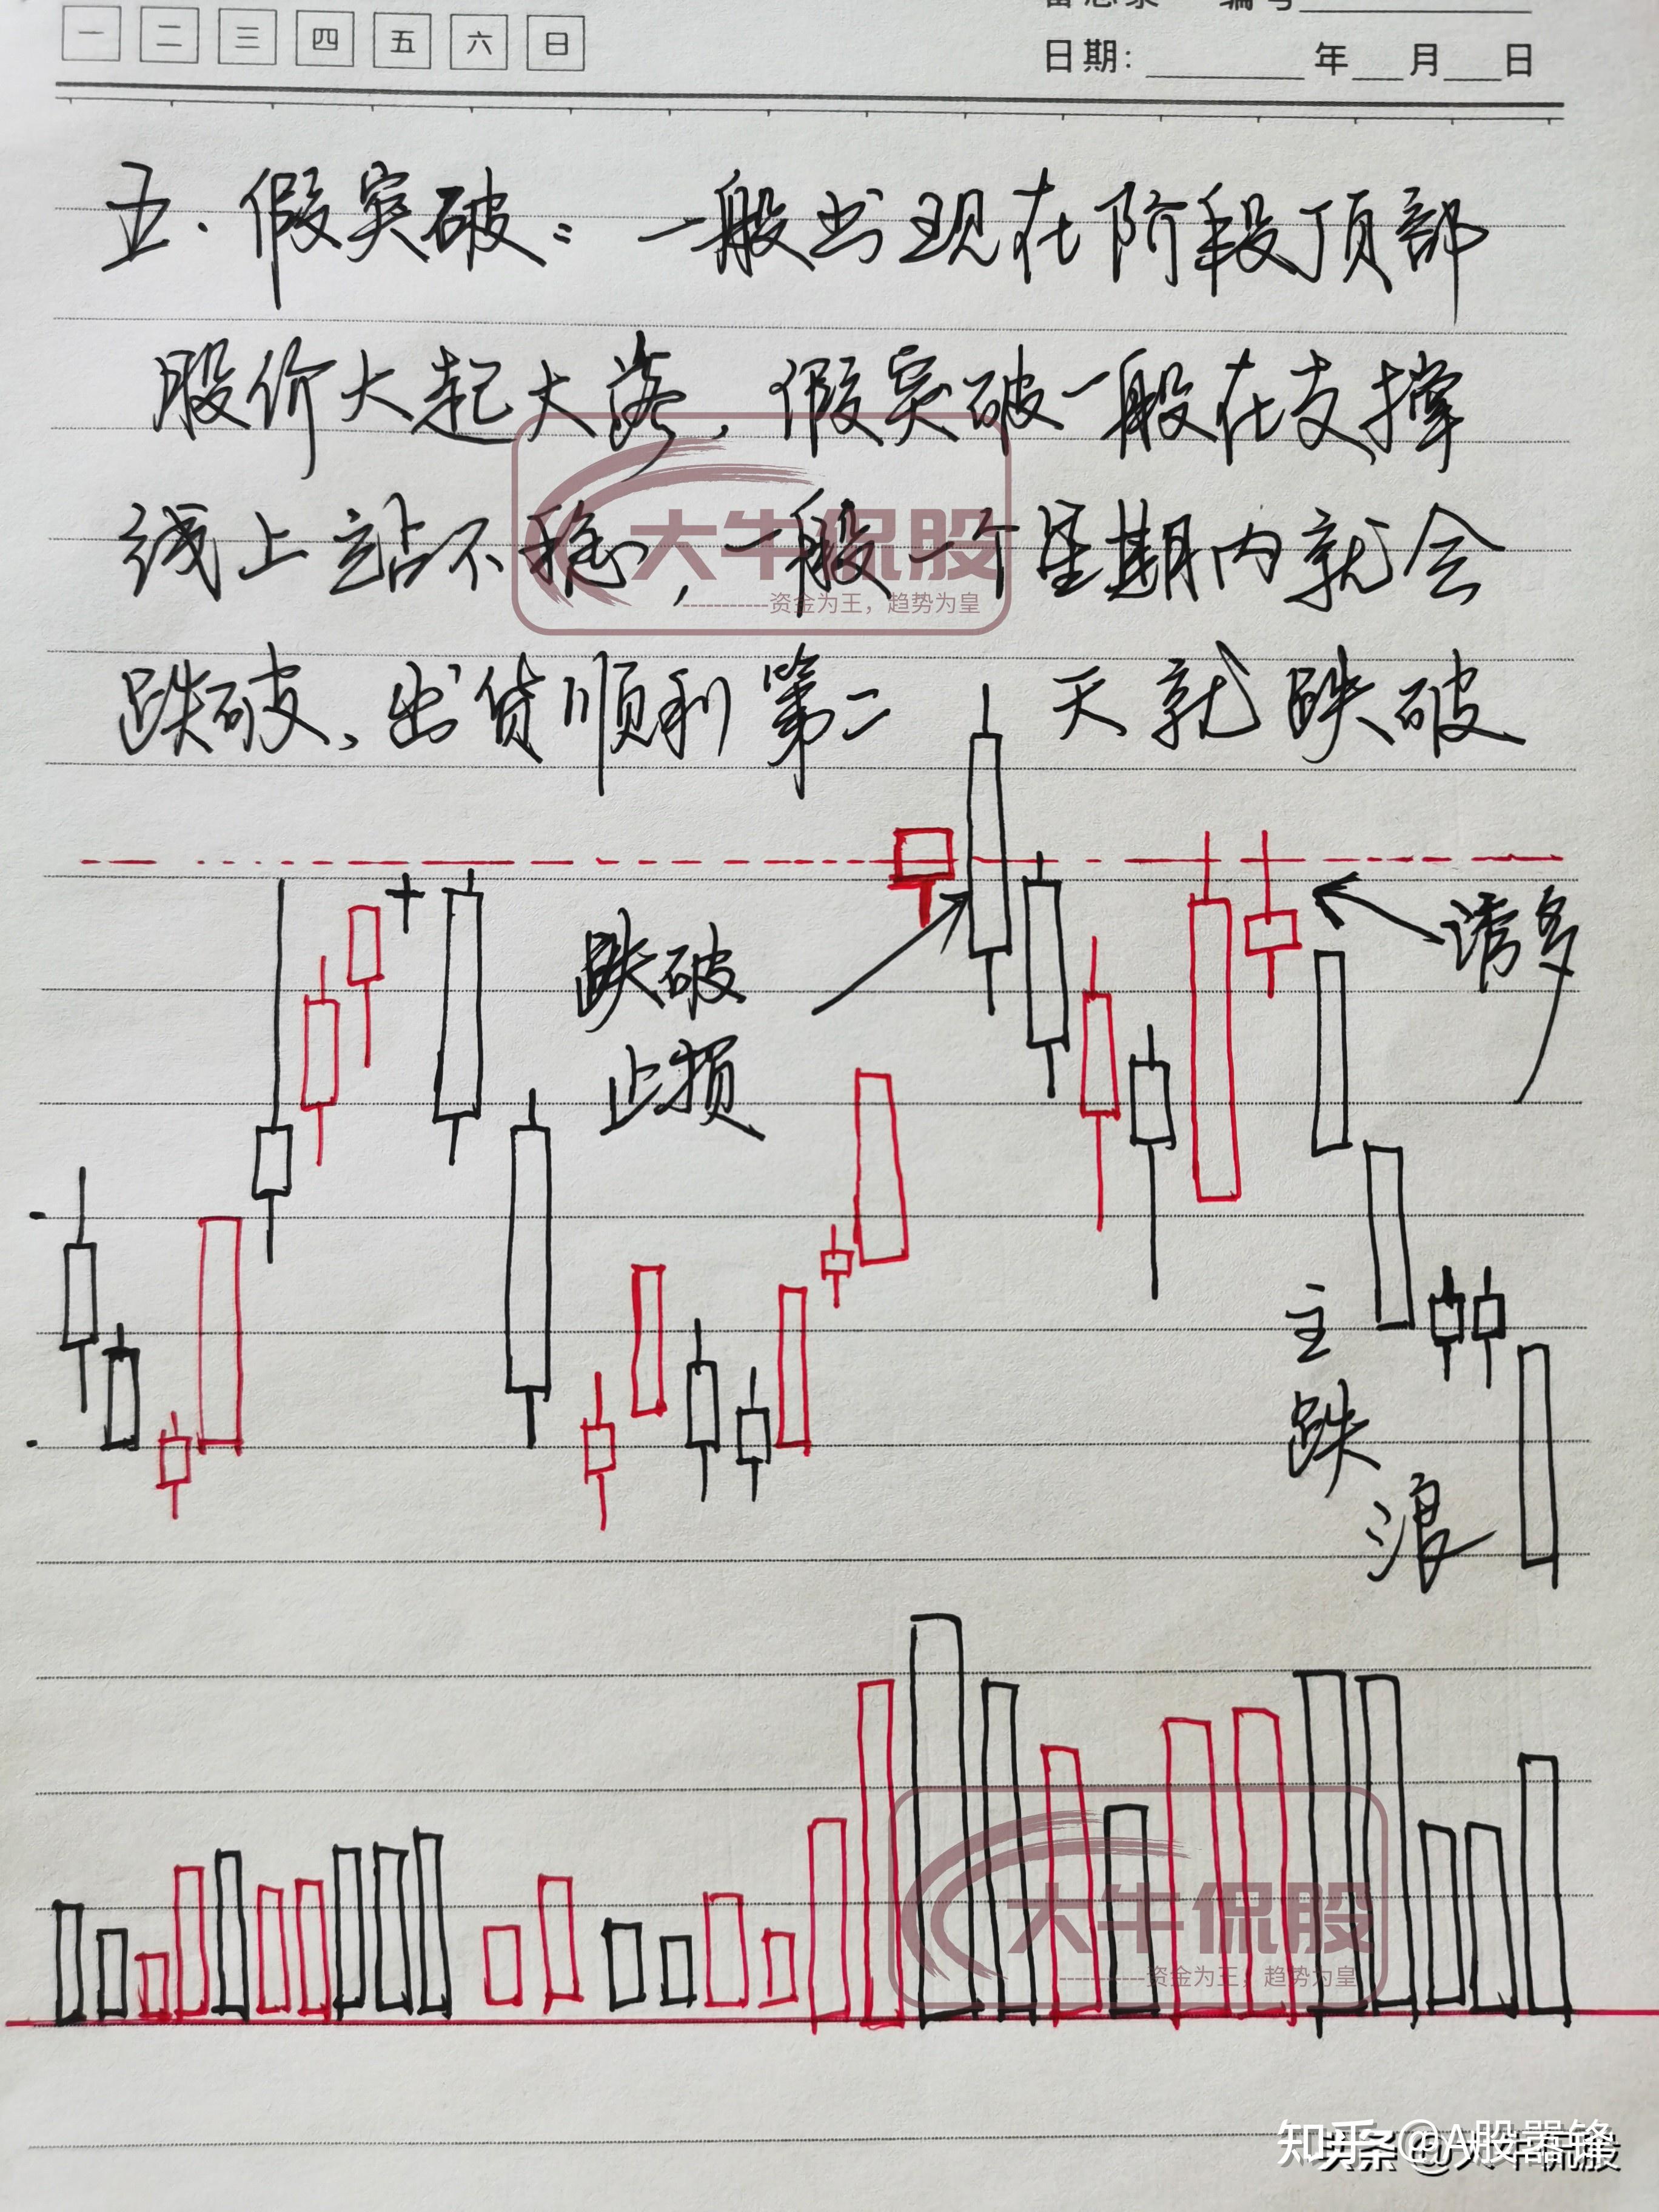 一 二 三 四 五 六 日
日期: 年 月 日
五.假突破:一般出现在阶段顶部
股价大起大落,假突破一般在支撑
线上站不稳,一般一个星期内就会
跌破、出货顺利第二天就跌破
大牛侃股
-----------资金为王,趋势为皇
跌破
止损
诱多
主
跌
浪
大牛侃股
-----------资金为王,趋势为皇
知乎 @A股器锋
头条 @大牛侃股